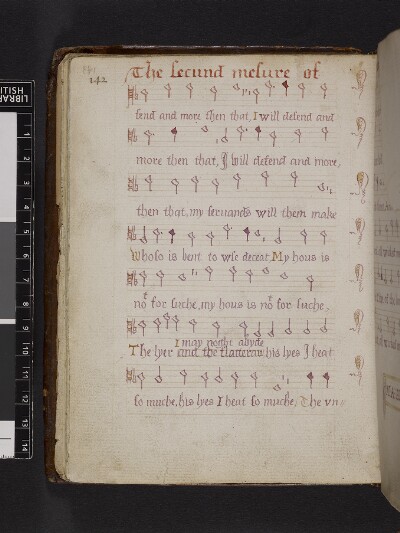 142
The secund mesure of
fend and more then that, I will defend and
more then that, I will defend and more,
then that, my servands will them make
Whoso is bent to wse deceat, My hous is
not for suche, my hous is not for suche,
I may noght abyde
The lyer and the flatterar his lyes I heat
so muche, his lyes I heat so muche, The vn
LIBRARY
1
2
3
4
5
6
7
8
9
10
11
12
13
14